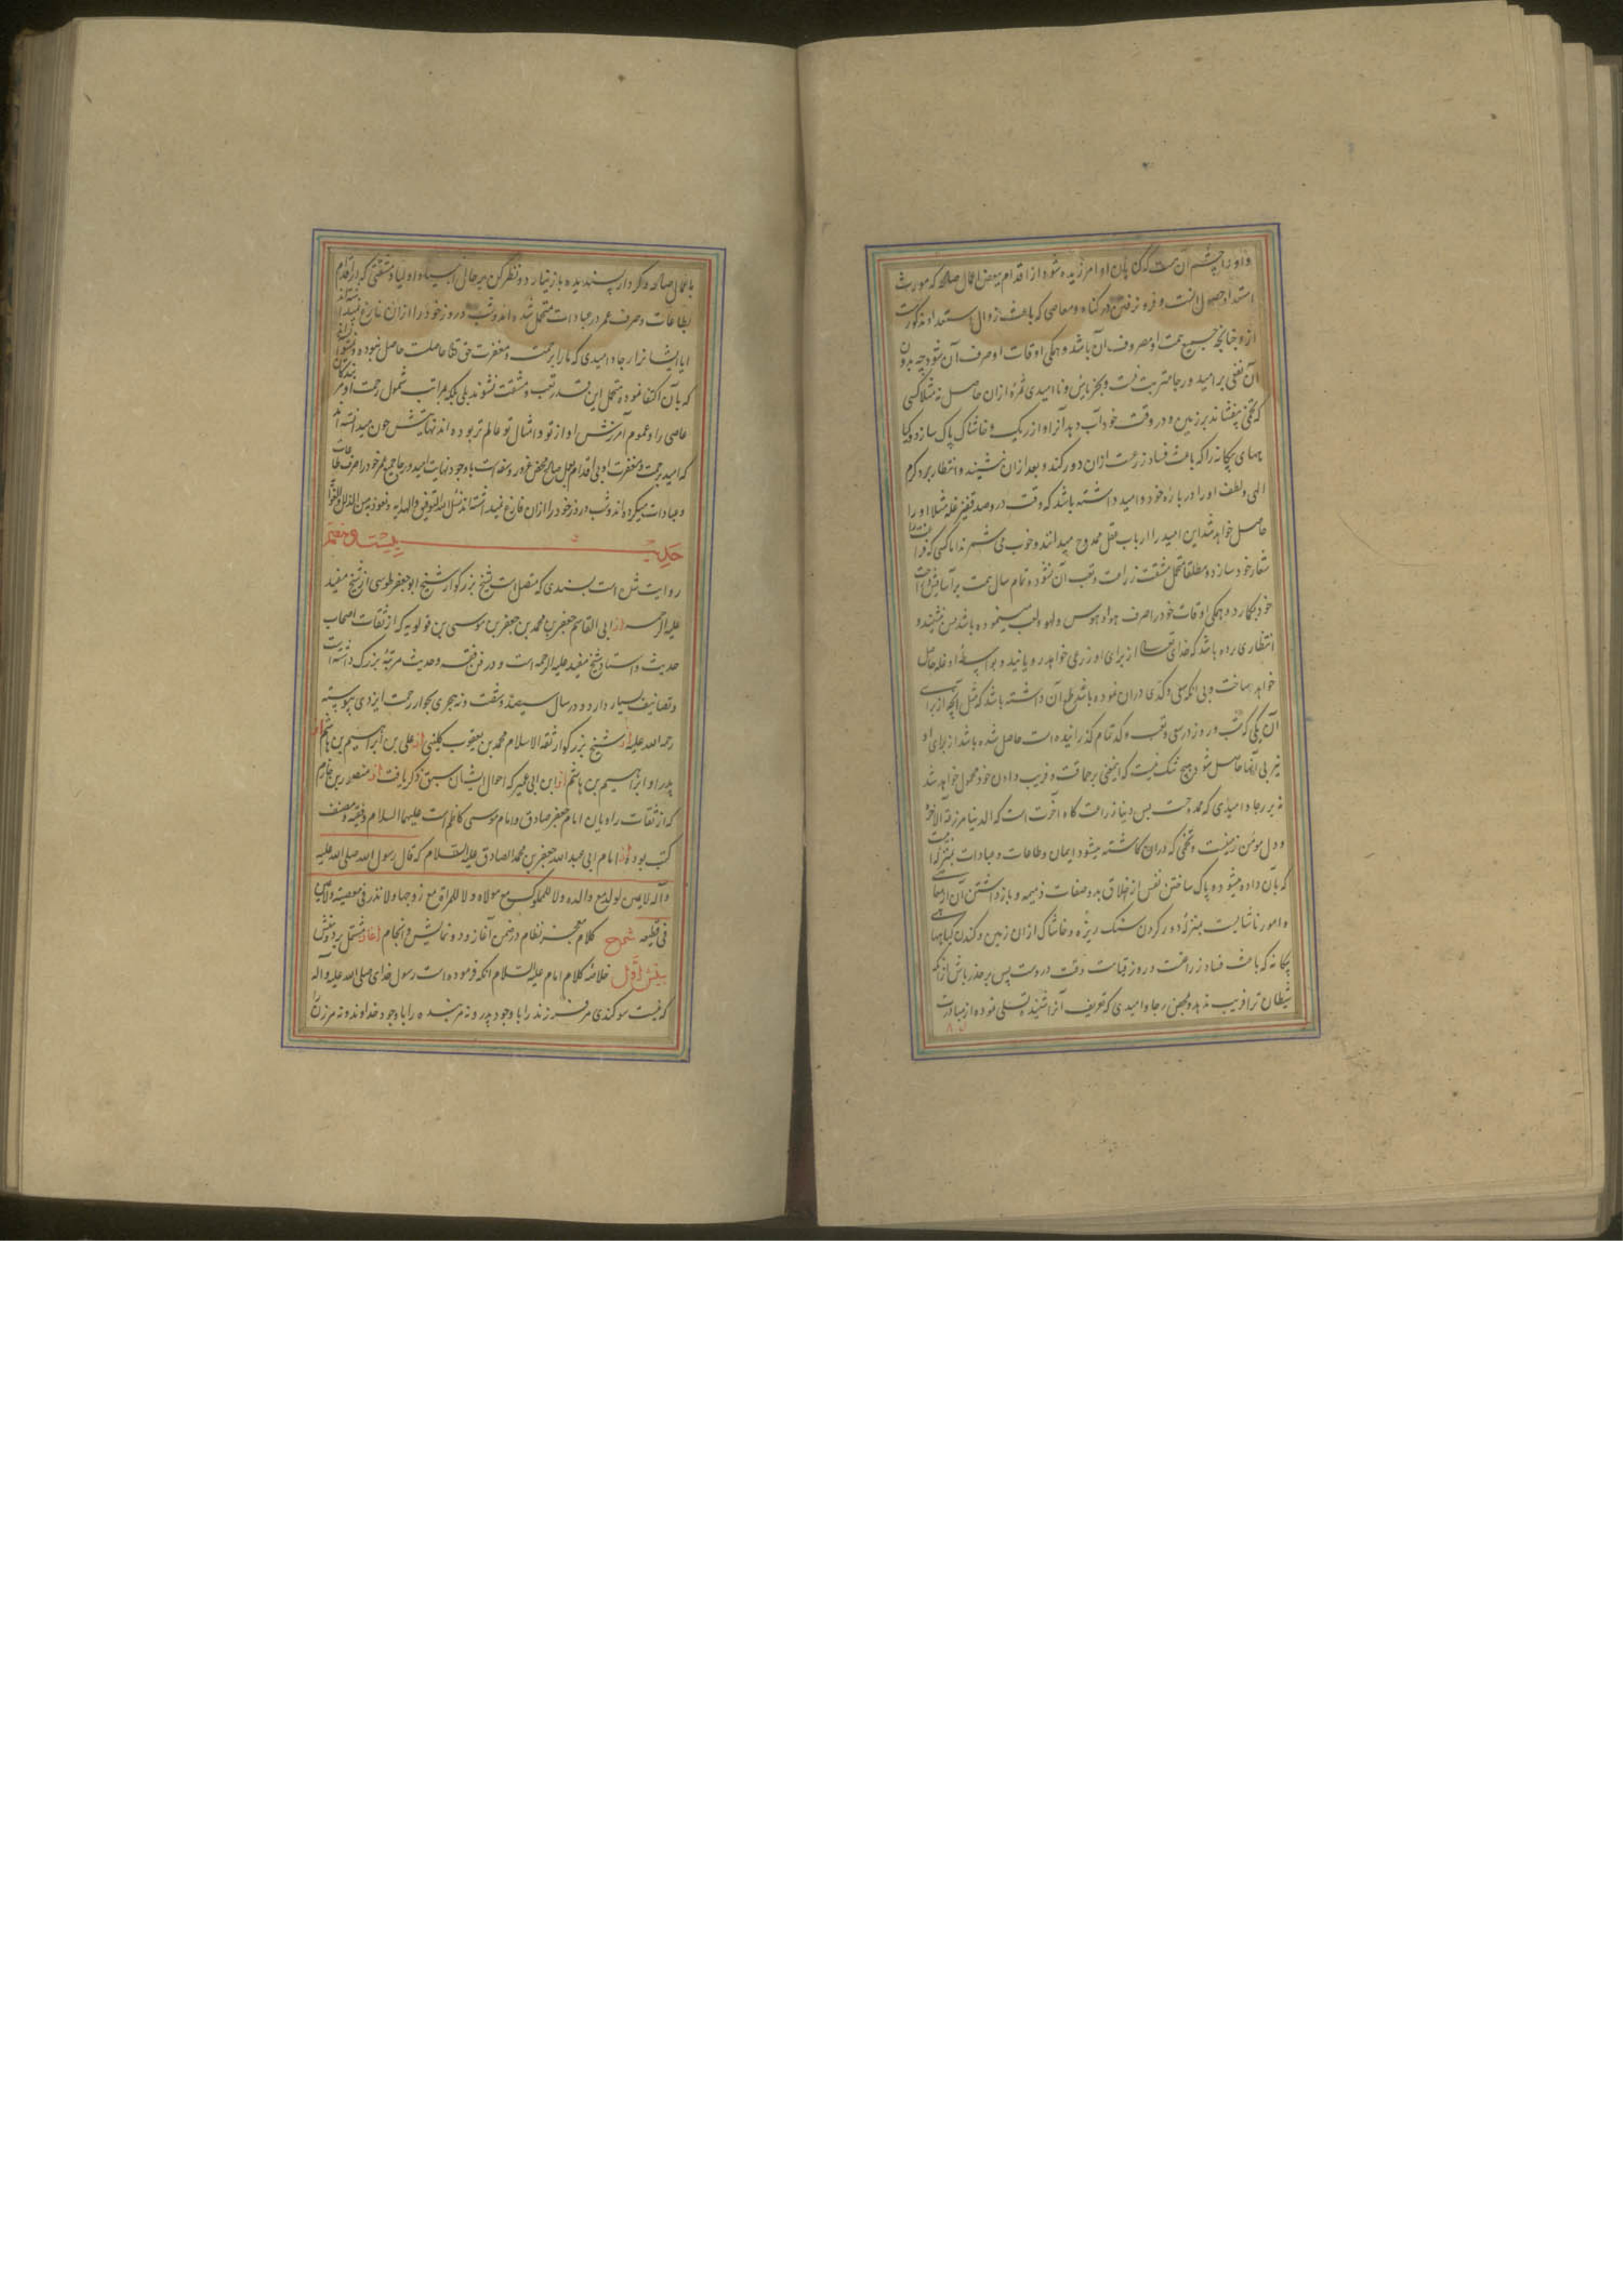 و او را چشم آن هست که گناهان او امرزیده شود از اقدام ببعض اعمال صالحه که مورث
استعداد حصول آنست و فرو نرفتن در گناه و معاصی که باعث زوال استعداد مذکورست
از و چنانچه جمیع همت او مصروف آن باشد و همکی اوقات او صرف آن شود چه بدون
آن نفعی بر امید و رجا مترتب نیست و بجز یاس و ناامیدی ثمره ازان حاصل نه مثلا کسی
که تخمی بیفشاند بر زمین و در وقت خود آب دهد آنرا و از ریک و خاشاک پاک سازد و کیا
ههای بیکانه را که باعث فساد زرعست ازان دور کند و بعد ازان نشیند و انتظار برد کرم
الهی و لطف او را درباره خود و امید داشته باشد که وقت درو صد قفیز غله مثلا او را
حاصل خواهد شد این امید را ارباب عقل ممدوح میدانند و خوب می شمرند اما کسی که
شعار خود سازد و مطلقا متحمل مشقت زراعت و تعب آن نشود و تمام سال همت بر آسایش و راحت
خود بکمارد و همکی اوقات خود را صرف هوا و هوس و لهو و لعب مینموده باشد پس نشیند و
انتظار می برده باشد که خدای تعالی از برای او زرعی خواهد رویانید و بواسطه او غله حاصل
خواهد ساخت و بی آنکه سعی و کدی دران نموده باشد طمع آن داشته باشد که مثل آنچه از برای
آن یکی که شب و روز در سعی و تعب و کد تمام کذرانیده است حاصل شده باشد از برای او
نیز بی آنها حاصل شود هیچ شک نیست که اینمعنی بر حماقت و فریب دادن خود محمول خواهد شد
نه بر رجا و امیدی که ممدوحست پس دنیا زراعت کاه آخرت است که الدنیا مزرعة الآخرة
و دل مؤمن زمینست و تخمی که دران کاشته میشود ایمان و طاعات و عبادات بمنزله
که بآن داده میشود و پاک ساختن نفس از اخلاق بد و صفات ذمیمه و باز داشتن آن از معاصی
و امور ناشایست بمنزله دور کردن سنک ریزه و خاشاک ازان زمین و کندن کیاههای
بیکانه که باعث فساد زراعتست و روز قیامت وقت دروست پس بر حذر باش از آنکه
شیطان ترا فریب ندهد و بمحض رجا و امیدی که تعریف آنرا شنیدی تسلی نموده از مبادرت
باعمال صالحه و کردار پسندیده باز نیارد و نظر کن بر حال انبیا و اولیا و مشقتی که در اقدام
بطاعات و صرف عمر در عبادات متحمل شده اند و شب و روز خود را ازان فارغ
ایا ایشانرا رجا و امیدی که ما را برحمت و مغفرت حق تعالی حاصلست حاصل نبوده
که بآن اکتفا نموده متحمل این قدر تعب و مشقت نشوند بلی بلکه بمراتب شمول رحمت او مر
عاصی را و عموم آمرزش او از تو و امثال تو عالم تر بوده اند نهایتش چون میدانسته اند
که امید برحمت و مغفرت او بی اقدام بعمل صالح محض غرور و سفه است باوجود نهایت امید و رجا جمیع عمر خود را صرف طاعات
و عبادات میکرده اند و شب و روز خود را ازان فارغ نمیداشته اند نسئل الله التوفیق و الهدایه و نعوذ به من الذلل و الغوایه
حدیث بیست و هفتم
روایت شده است بسندی که متصل است بشیخ بزرکوار شیخ ابو جعفر طوسی از شیخ مفید
علیه الرحمه از ابی القاسم جعفر بن محمد بن جعفر بن موسی بن قولویه که از ثقات اصحاب
حدیث و استاد شیخ مفید علیه الرحمه است و در فن فقه و حدیث مرتبه بزرک داشته است
و تصانیف بسیار دارد و در سال سیصد و شصت و نه هجری بجوار رحمت ایزدی پیوسته
رحمه الله علیه از شیخ بزرکوار ثقة الاسلام محمد بن یعقوب کلینی از علی بن ابراهیم بن هاشم از
پدر او ابراهیم بن هاشم از ابن ابی عمیر که احوال ایشان سبق ذکر یافت از منصور بن حازم
که از ثقات راویان امام جعفر صادق و امام موسی کاظم است علیهما السلام و فقیه و مصنف
کتب بوده از امام ابی عبد الله جعفر بن محمد الصادق علیه السلام که قال رسول الله صلی الله علیه
و آله لا یمین لولد مع والده و لا للمملوک مع مولاه و لا للمراة مع زوجها و لا نذر فی معصیة و لا یمین
فی قطیعه شرح کلام معجز نظام در ضمن آغاز و دو نمایش و انجام آغاز مشتمل بر دو بینش
بینش اول خلاصه کلام امام علیه السلام آنکه فرموده است رسول خدای صلی الله علیه و آله
که نیست سوکندی مر فرزند را با وجود پدر و نه مر بنده را با وجود خداوند و نه مر زن